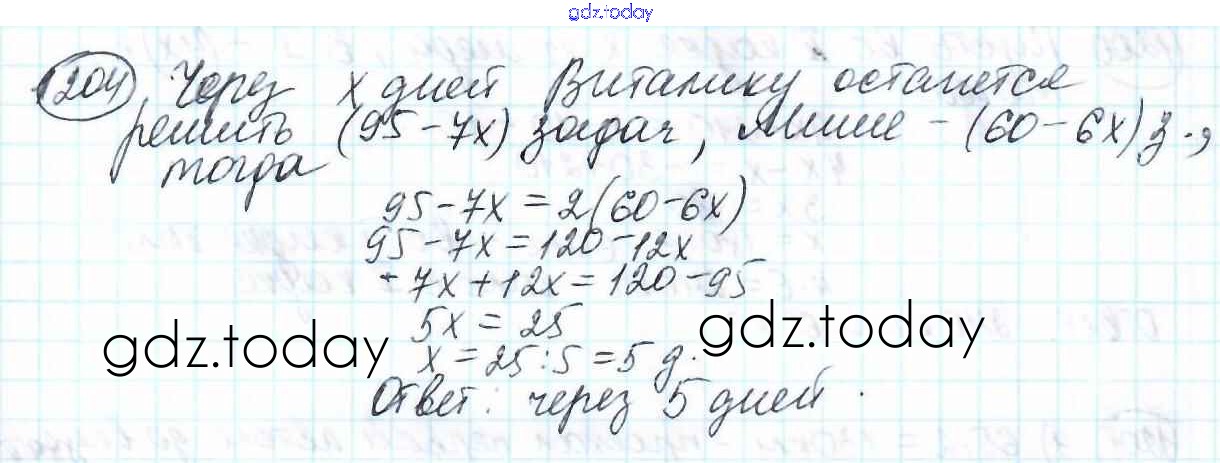 gdz.today
1204 Через x дней Виталику останется
решить (95-7x) задач, Мише - (60-6x) з.,
тогда
95-7x=2(60-6x)
95-7x=120-12x
-7x+12x=120-95
5x=25
x=25:5=5 д.
Ответ: через 5 дней.
gdz.today
gdz.today